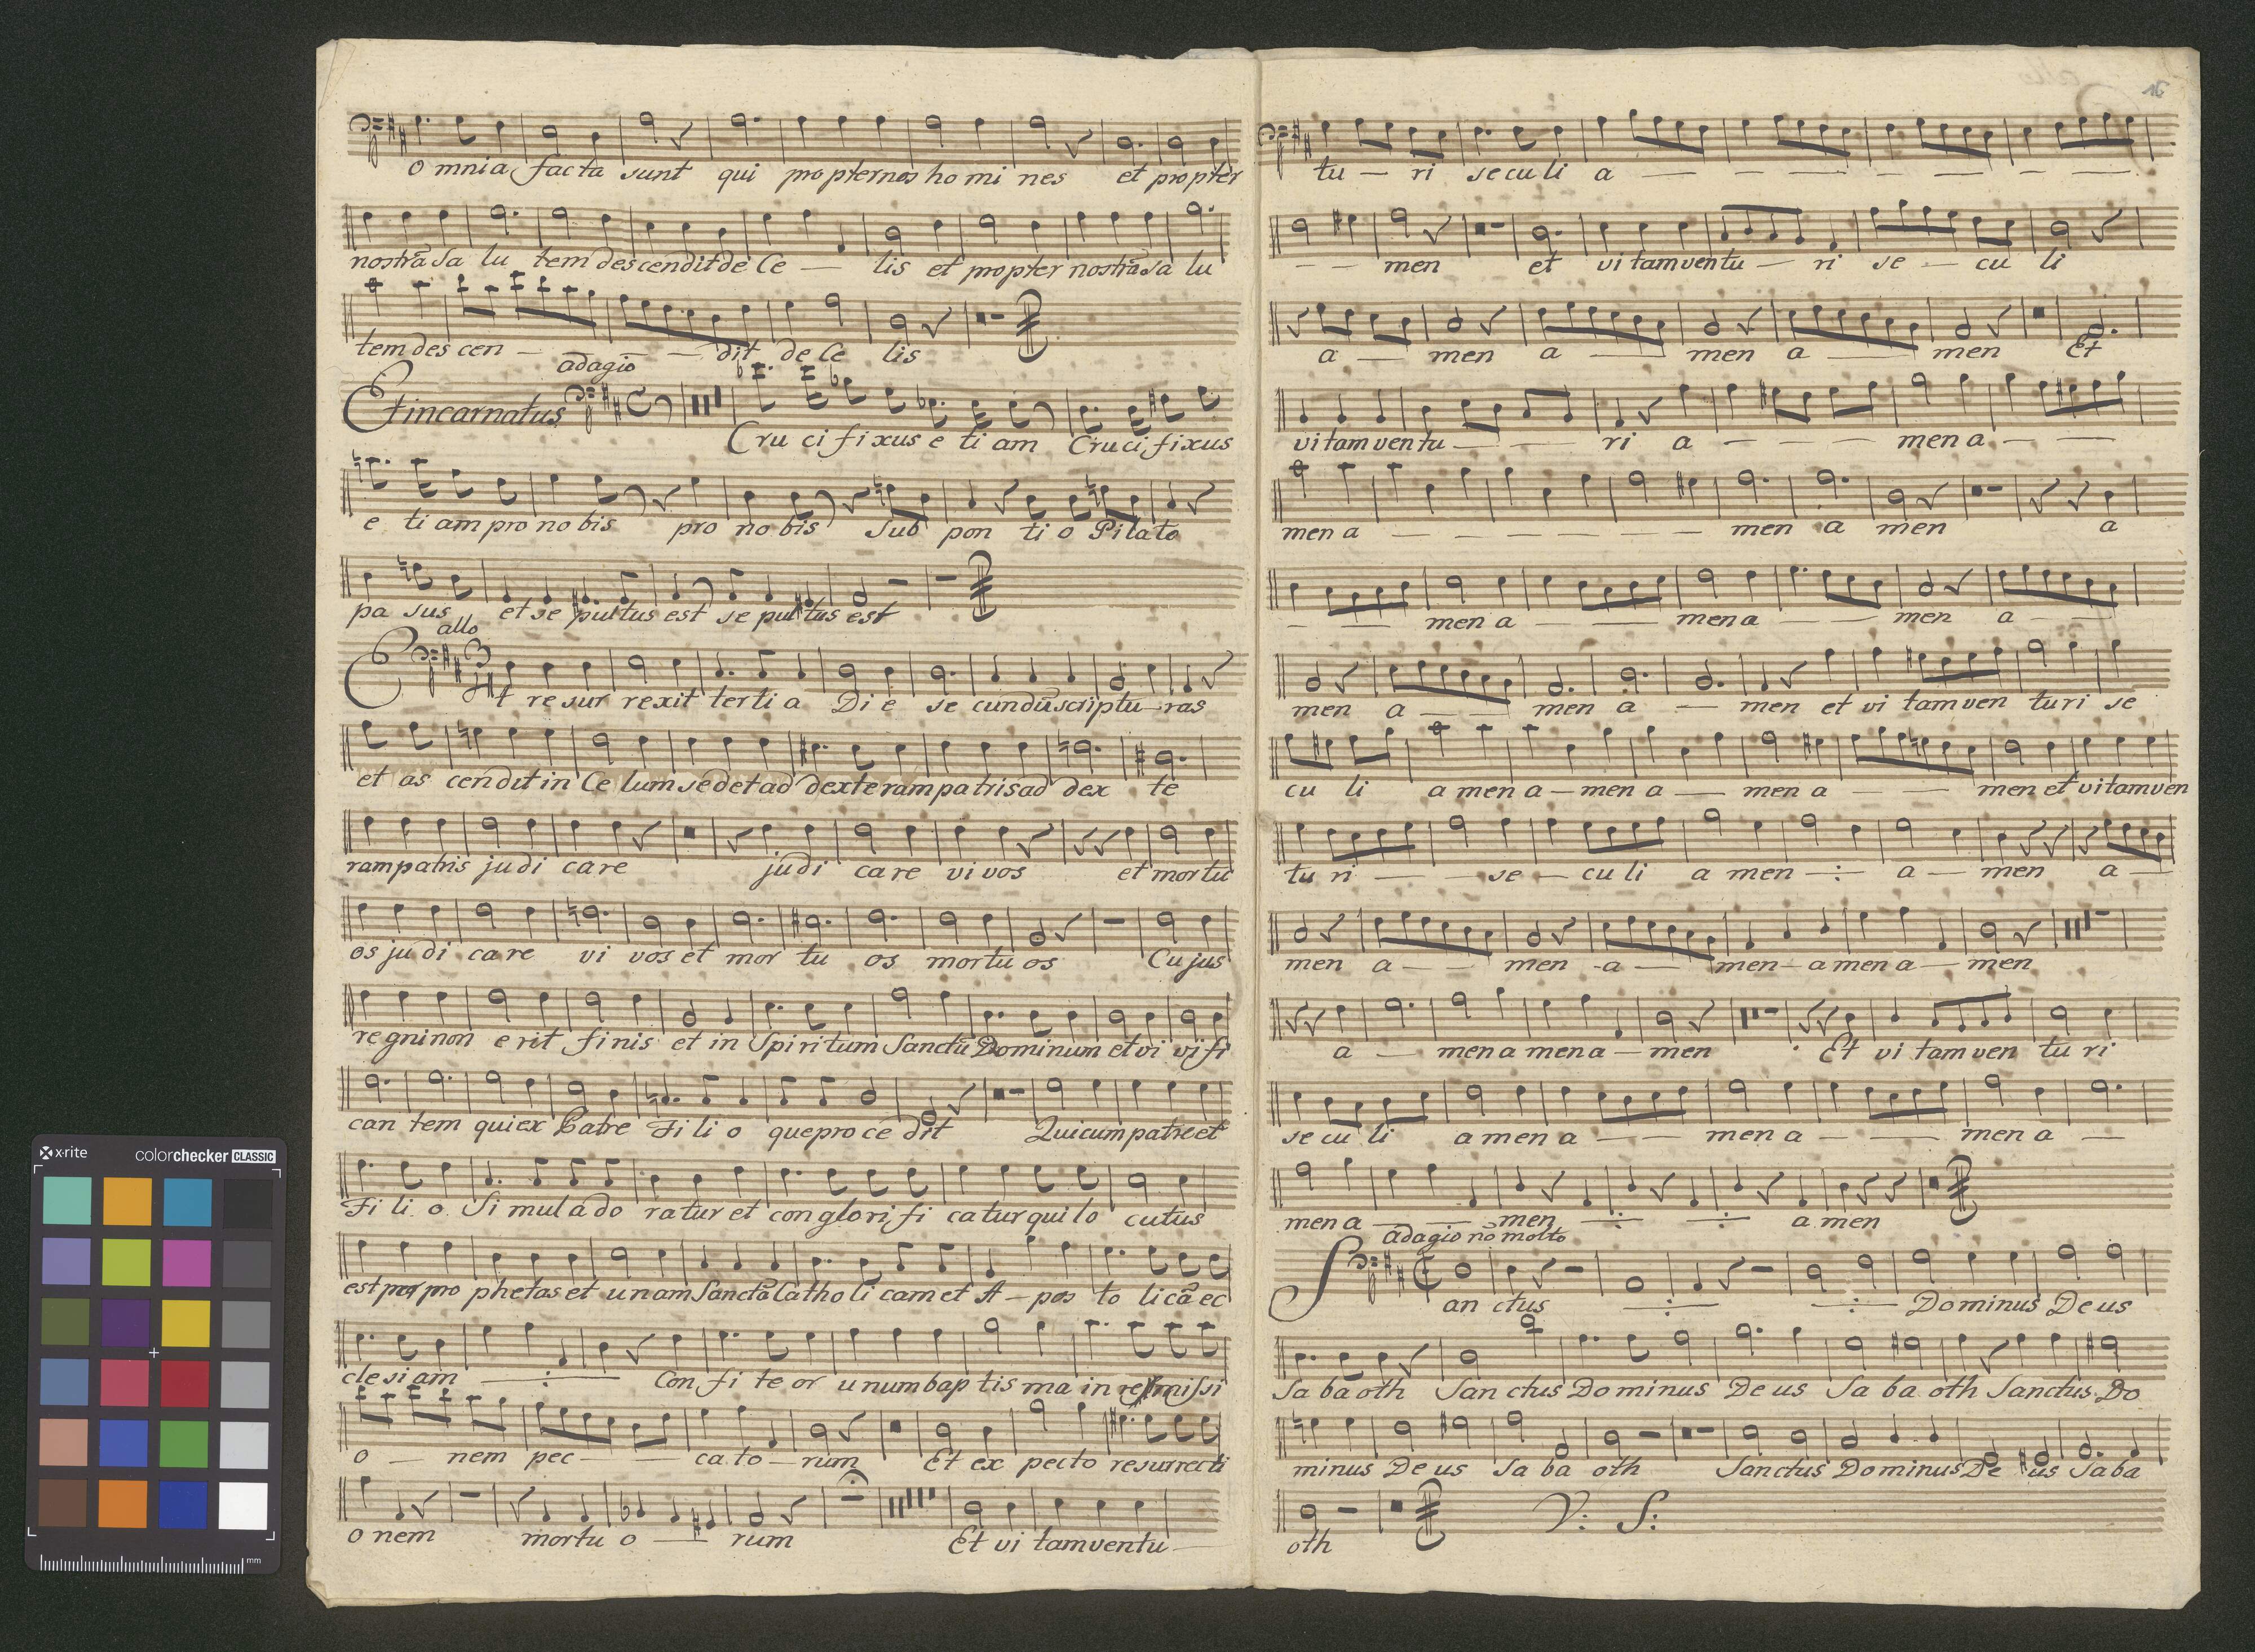 O mnia facta sunt qui propter nos ho mi nes et propter
nostrā sa lu tem descendit de Ce — lis et propter nostrā sa lu
tem des cen — — dit de Ce lis
adagio
Et incarnatus Cru ci fi xus e ti am Cruci fixus
e ti am pro no bis pro no bis sub pon ti o Pilato
pa sus et se pultus est se pultus est
allo
Et re sur rexit terti a Di e se cundū scriptu — ras
et as cendit in Ce lum sedet ad dexteram patris ad dex te
ram patris judi care judi care vi vos et mortu
os ju di ca re vi vos et mor tu os mortu os Cujus
regni non e rit finis et in Spiritum Sanctū Dominum et vi vifi
can tem qui ex Patre Fi li o que proce dit Qui cum patre et
Fi li o Si mul ado ratur et con glo ri fi ca tur qui lo cutus
est per pro phetas et unam Sanctā Catho li cam et A — pos to licā ec
cle si am — : — Con fi te or unum bap tis ma in remissi
o — nem pec — — ca to — rum Et ex pecto resurrecti
o nem mortu o — rum Et vi tam ventu —
16
tu — ri se cu li a — — — — — — — —
— — men et vi tam ventu — ri se — cu li
a — men a — — men a — men Et
vi tam ventu — — — ri a — — — — men a — —
men a — — — — — — — men a men a
— — — men a — — — men a — — — men a — —
men a — — men a — men et vi tam ven turi se
cu li a men a — men a — men a — — men et vitam ven
tu ri — — se — cu li a men — : — a — men a —
men a — — men a — — men — a men a — men
a — men a men a — men Et vi tam ven tu ri
se cu li a men a — — — men a — — — men a —
men a — — men — : — — : — a men
adagio nō molto
San ctus — : — — : — Dominus Deus
Sa ba oth San ctus Dominus De us Sa ba oth Sanctus Do
minus De us Sa ba oth Sanctus Dominus De us Saba
oth V: S: